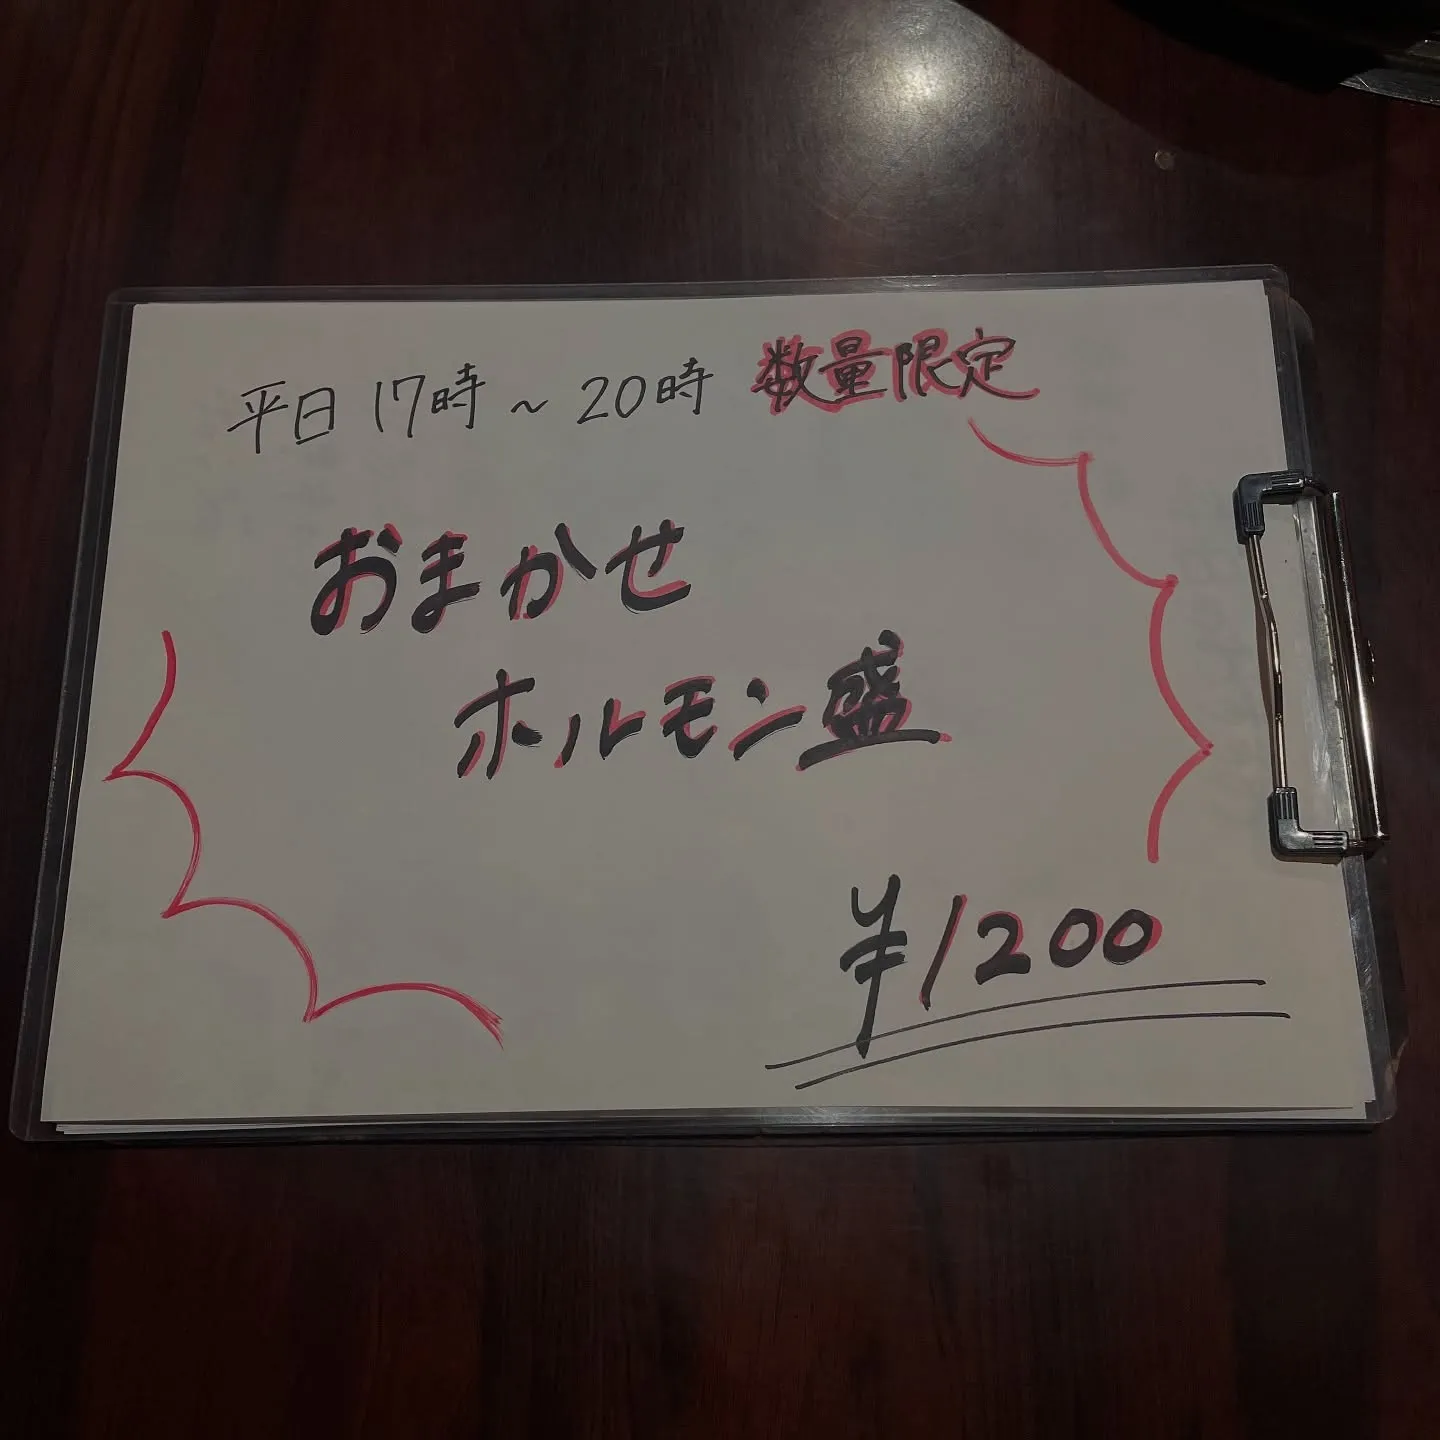 平日 17時 ~ 20時 数量限定
おまかせ
ホルモン盛
¥1200